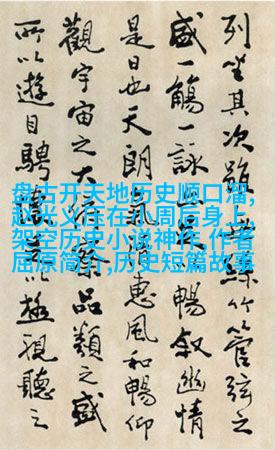 盘古开天地历史顺口溜,
赵光义压在小周后身上,
架空历史小说神作,作者
屈原简介,历史短篇故事
列坐其次雖絲竹管弦之
盛一觴一詠暢敘幽情
是日也天朗氣惠風和暢仰
觀宇宙之大品類之盛
所以遊目騁以極視聽之